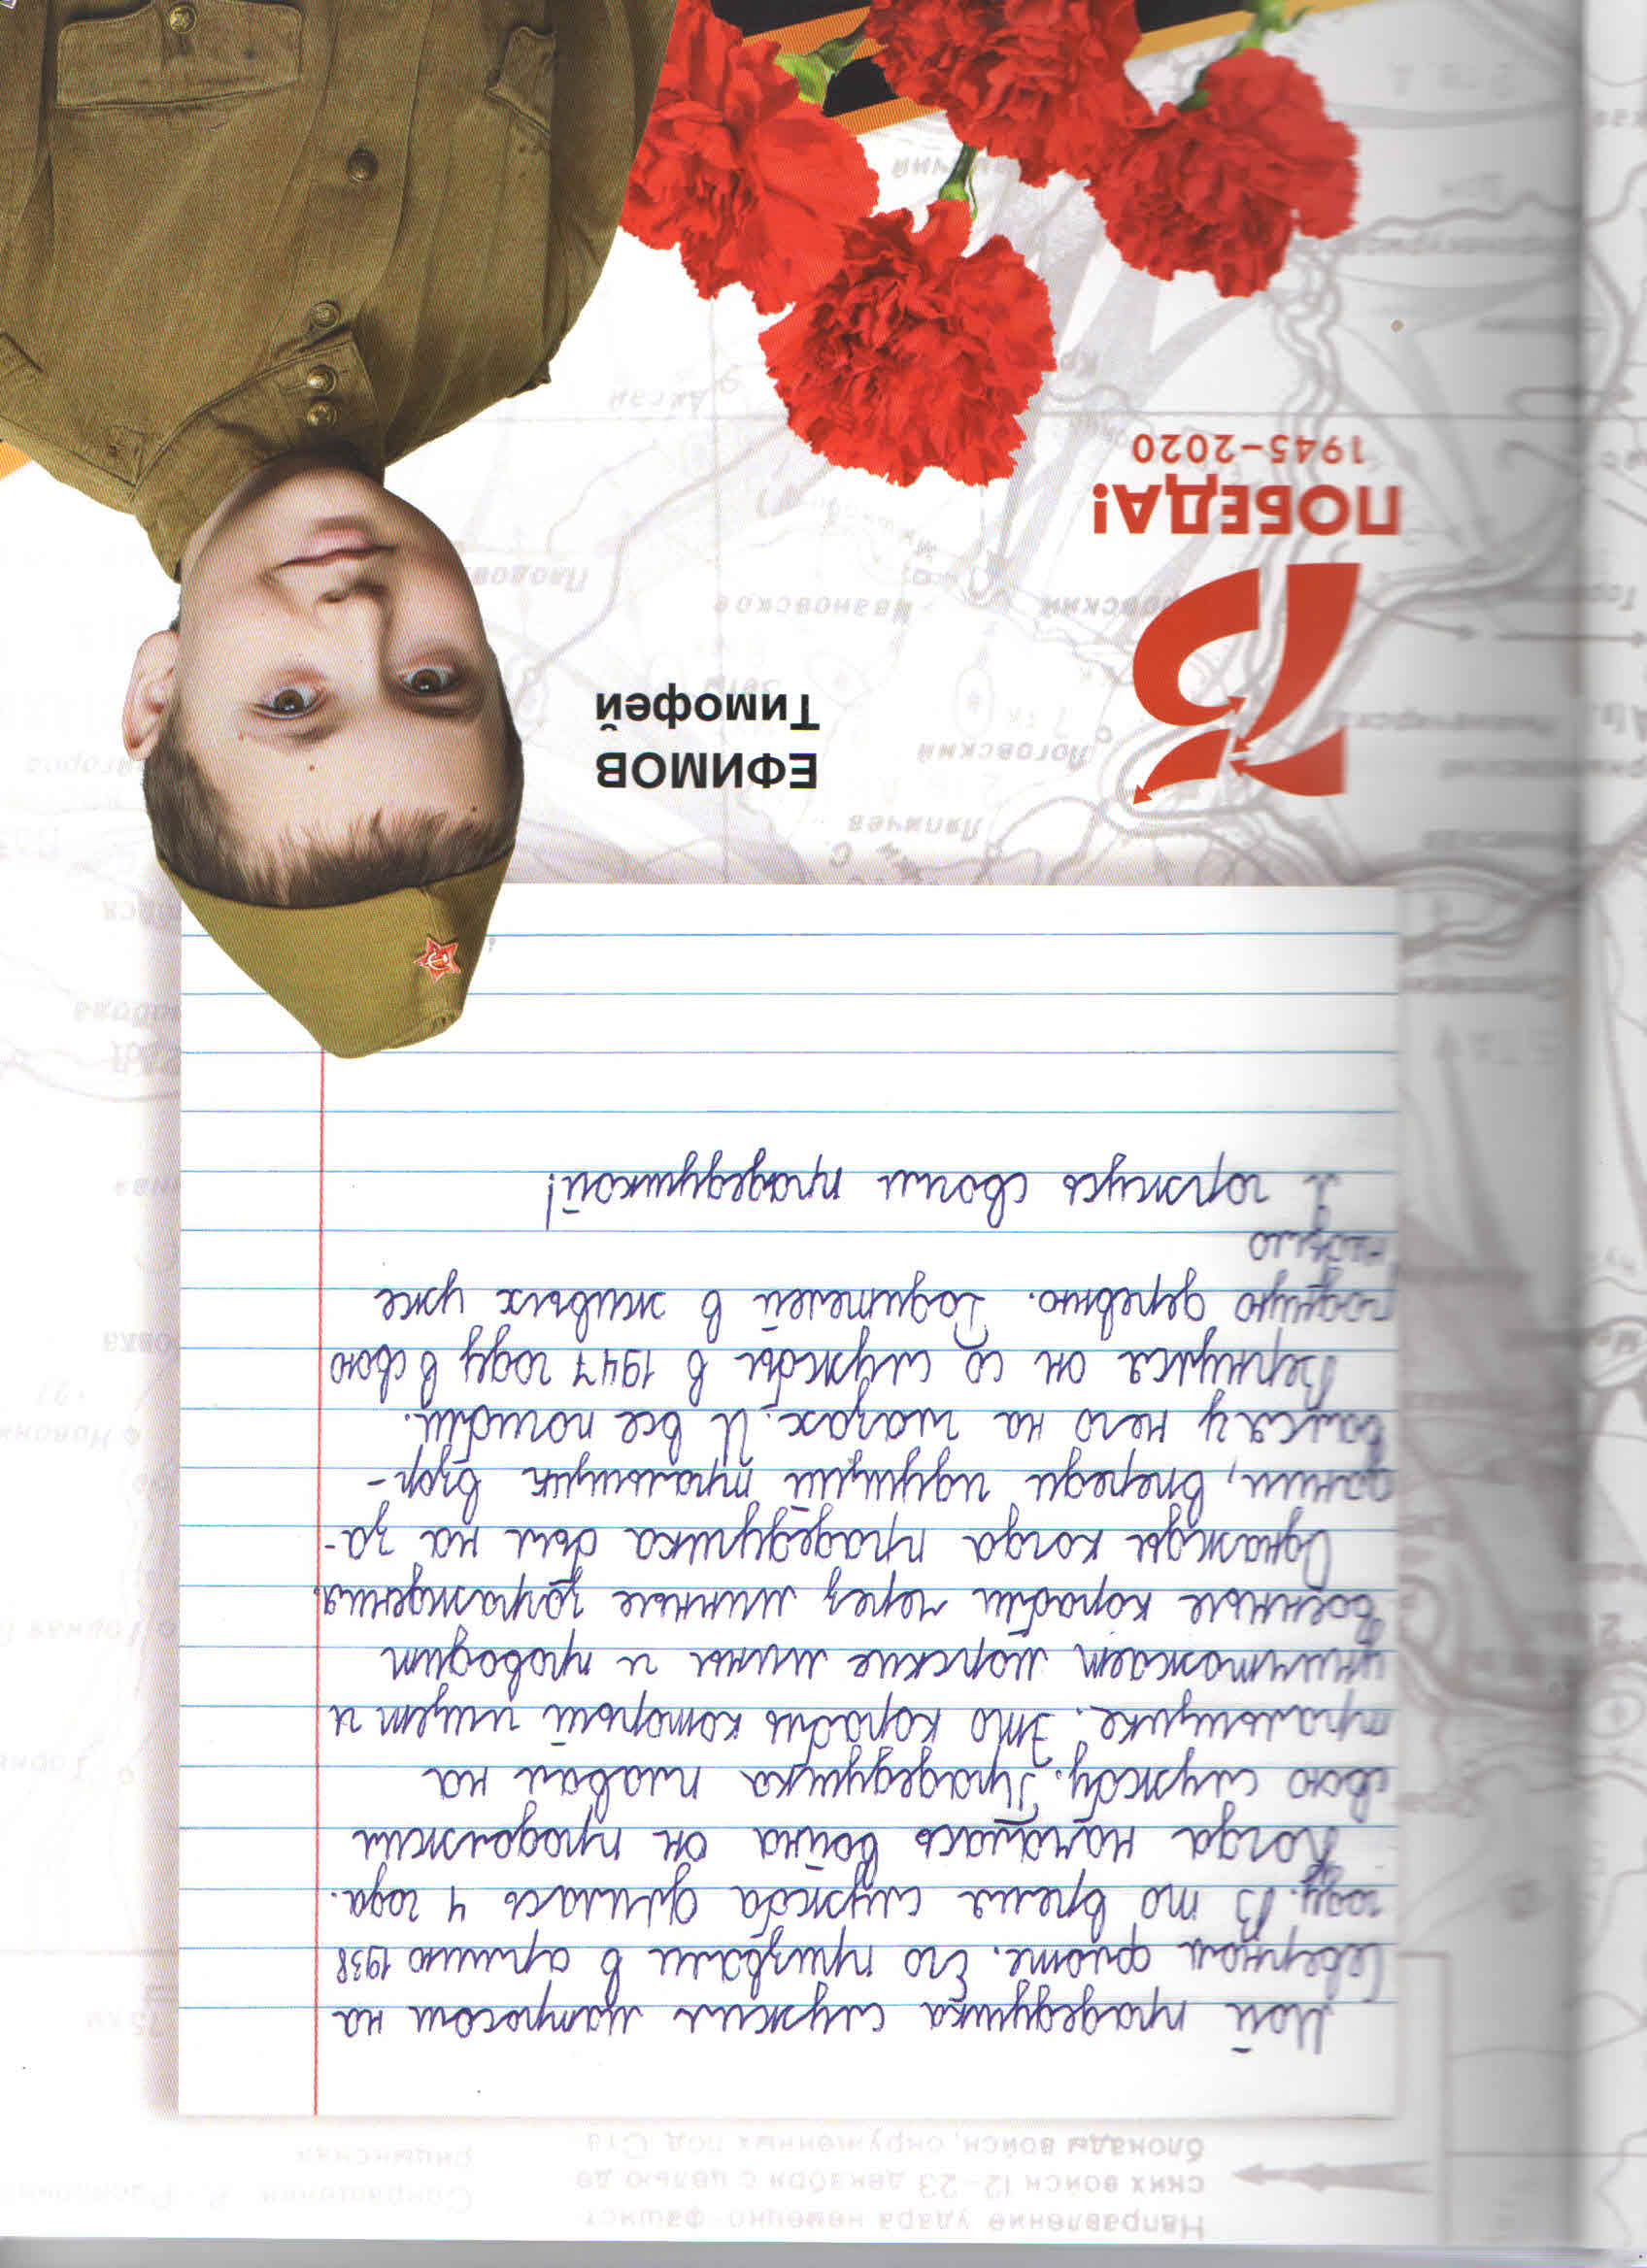 Направление удара немецко-фашист
ских войск 12–23 декабря с целью де
блокады войск, окруженных под Ста
Сокращения
рицынская
75 км
Мой прадедушка служил матросом на
Северном флоте. Его призвали в армию 1938
году. В то время служба длилась 4 года.
Когда началась война он продолжил
свою службу. Прадедушка плавал на
тральщике. Это корабль который ищет и
уничтожает морские мины и проводит
военные корабли через минные заграждения.
Однажды когда прадедушка был на за-
дании, впереди идущий тральщик взор-
вался у него на глазах. И все погибли.
Вернулся он со службы в 1947 году в свою
родную деревню. Родителей в живых уже
небыло
Я горжусь своим прадедушкой!
Ляпичев
Логовский
ЕФИМОВ
Тимофей
75
Ивановское
ПОБЕДА!
1945–2020
Аксай